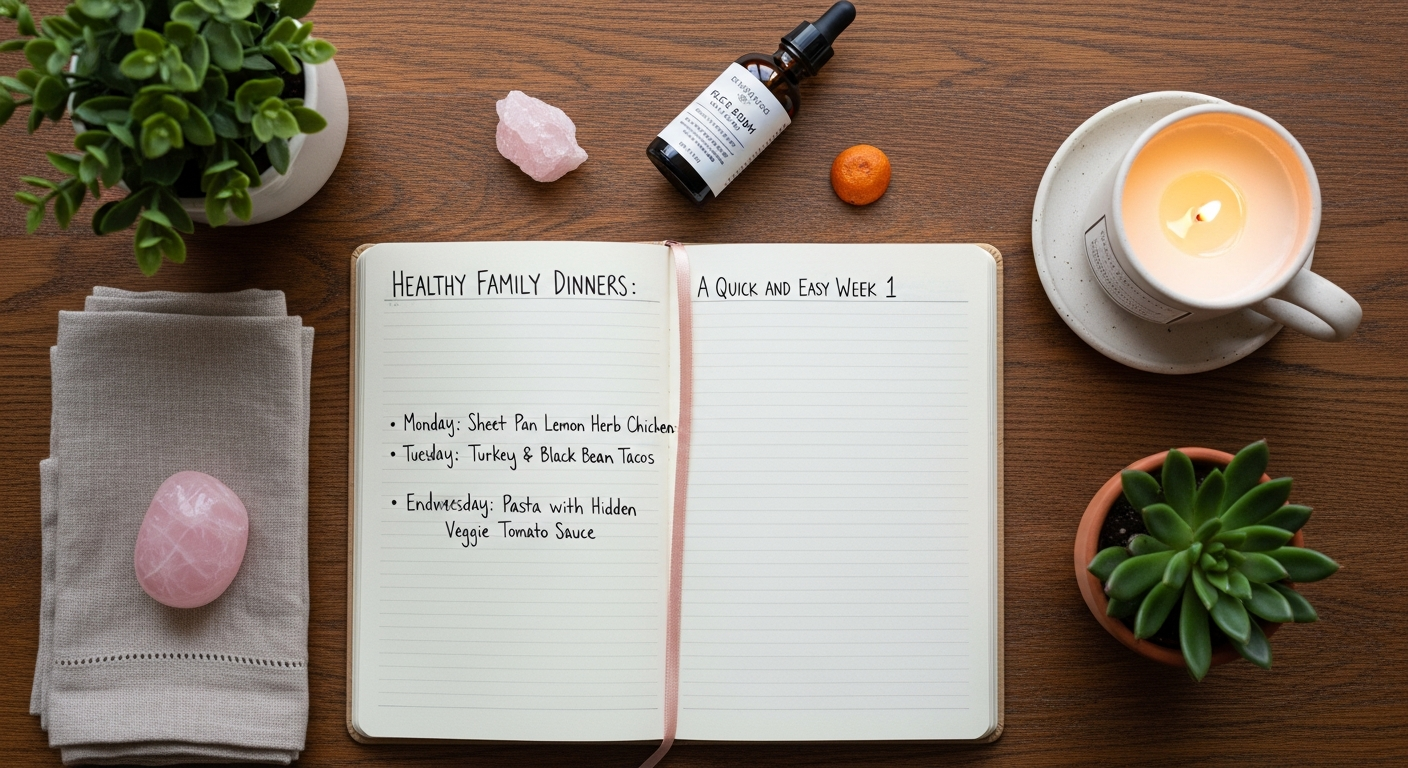 HEALTHY FAMILY DINNERS:
A QUICK AND EASY WEEK 1
• Monday: Sheet Pan Lemon Herb Chicken
• Tuesday: Turkey & Black Bean Tacos
• Endwesday: Pasta with Hidden
Veggie Tomato Sauce